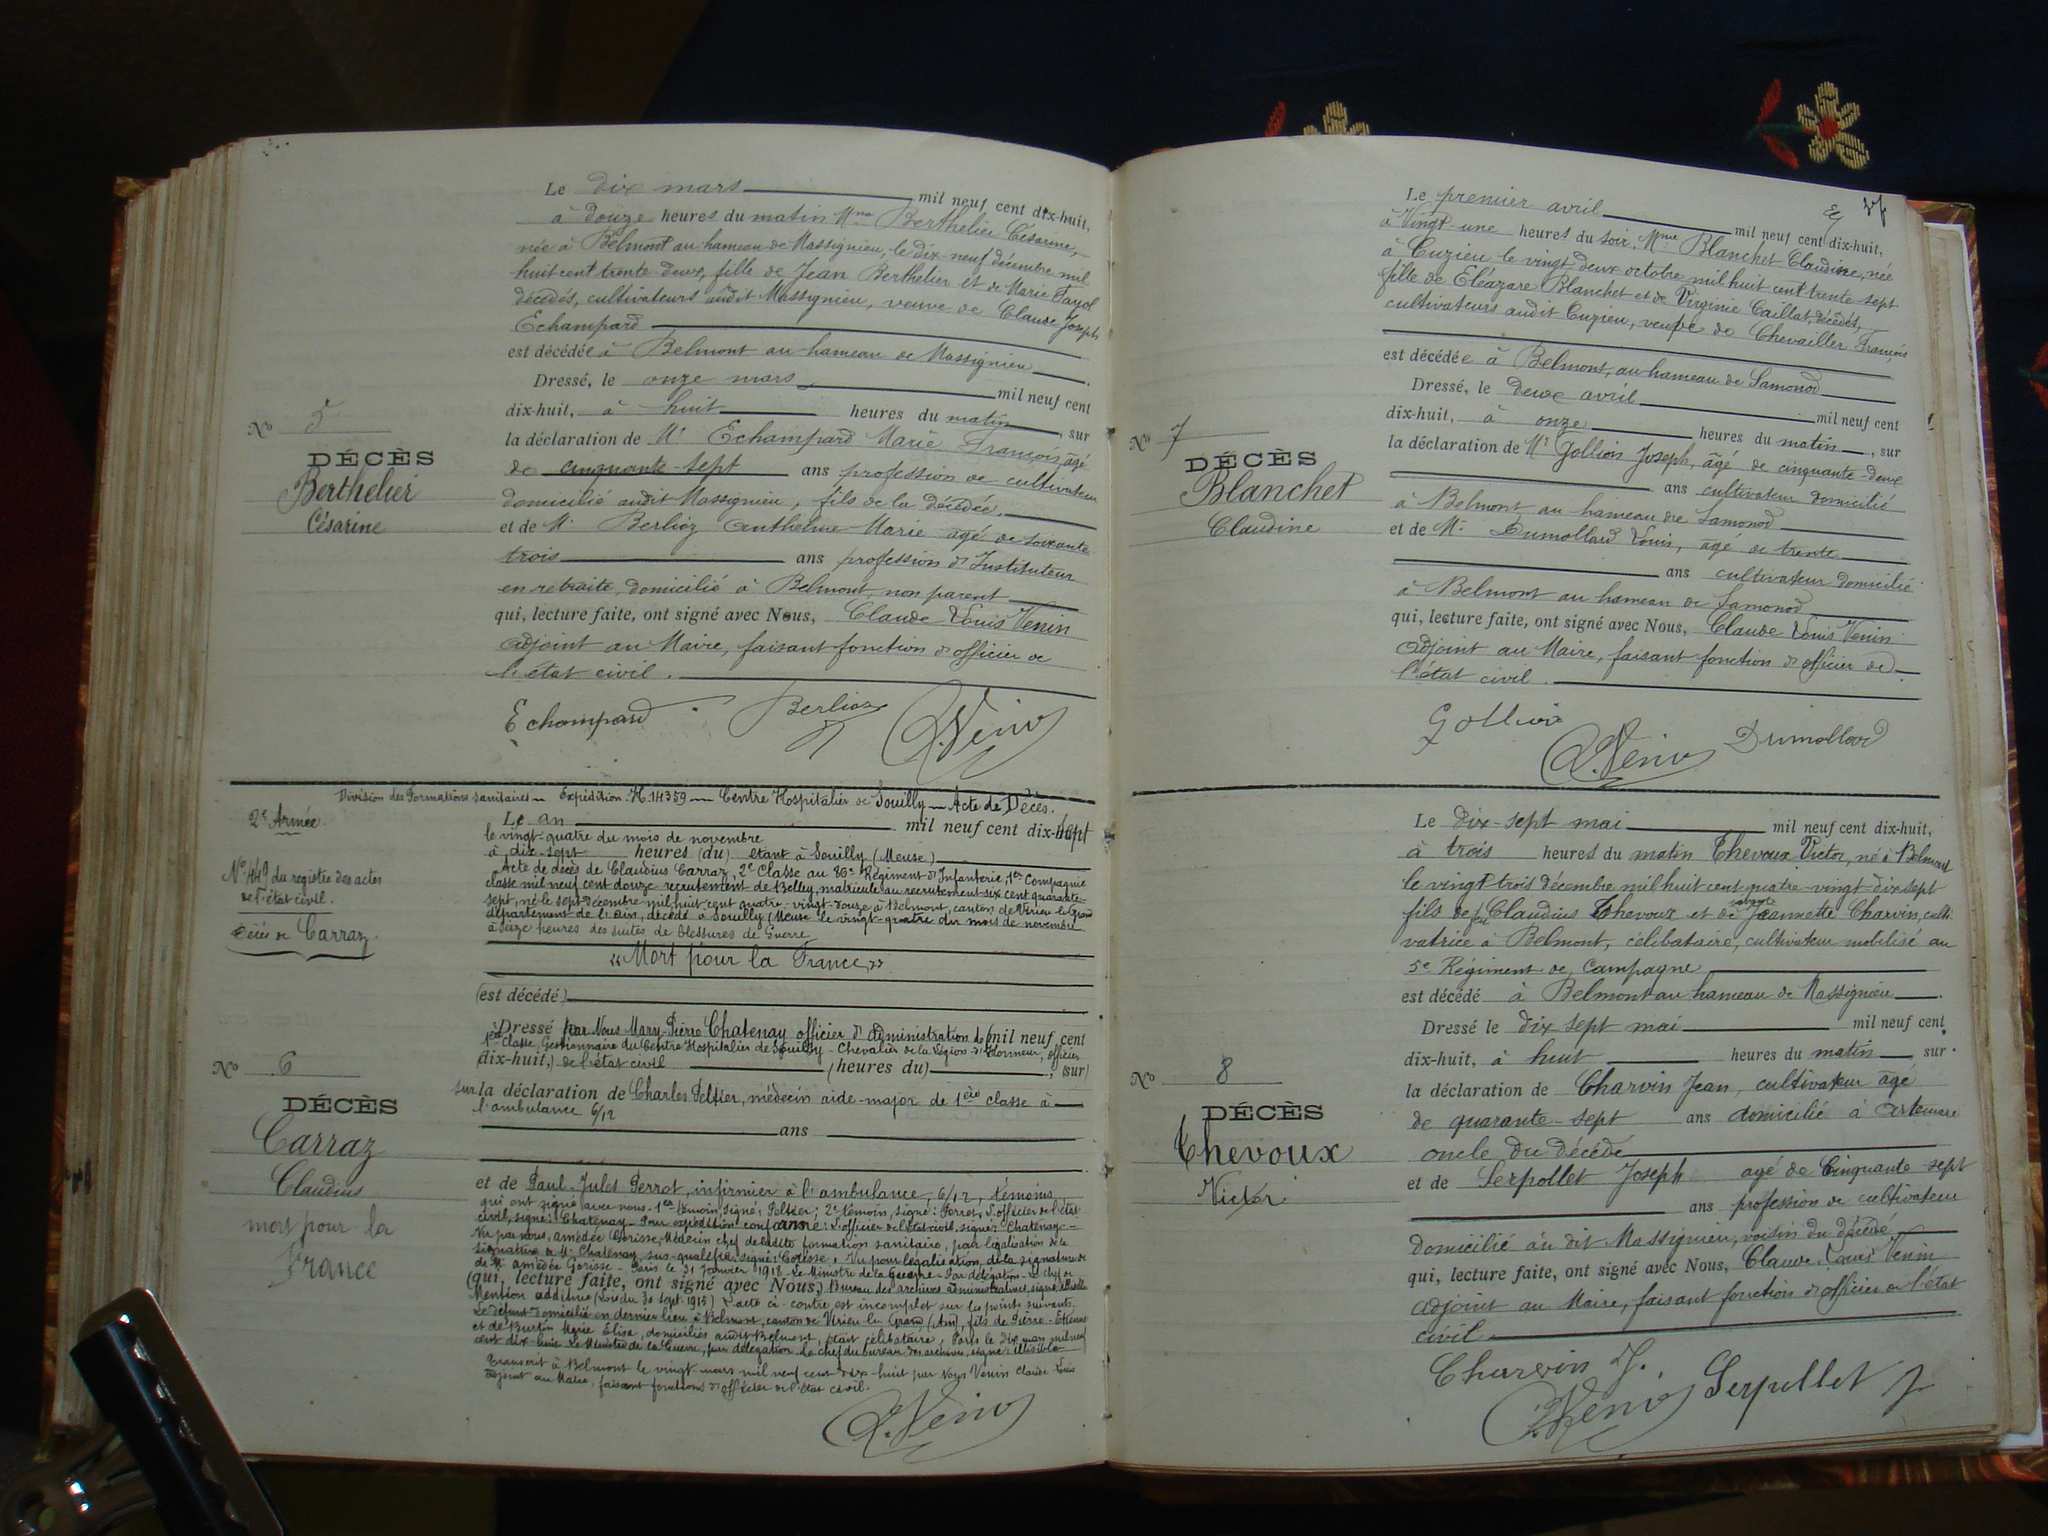 Le dix mars mil neuf cent dix-huit,
à douze heures du matin Mme Berthelier Césarine,
née à Belmont au hameau de Massignieu, le dix-neuf décembre mil
huit cent trente deux, fille de Jean Berthelier et de Marie Fayol
décédés, cultivateurs audit Massignieu, veuve de Claude Joseph
Echampard
est décédée à Belmont au hameau de Massignieu
Dressé, le onze mars mil neuf cent
dix-huit, à huit heures du matin, sur
la déclaration de Mr Echampard Marie François, âgé
de cinquante-sept ans profession de cultivateur
domicilié audit Massignieu, fils de la décédée.
et de Mr Berlioz Anthelme-Marie âgé de soixante
trois ans profession d'Instituteur
en retraite, domicilié à Belmont, non parent
qui, lecture faite, ont signé avec Nous, Claude Louis Venin
adjoint au Maire, faisant fonction d'officier de
l'état civil.
No 5
DÉCÈS
Berthelier
Césarine
Echampard Berlioz Venin
Division des Formations sanitaires - Expédition H.14359 - Centre Hospitalier de Souilly - Acte de Décès.
2e Armée
No 449 du registre des actes
de l'état civil.
Décès de Carraz
Le an mil neuf cent dix-sept
le vingt-quatre du mois de novembre
à dix-sept heures (du) étant à Souilly (Meuse)
Acte de décès de Claudius Carraz, 2e Classe au 86e Régiment d'Infanterie, 1ère Compagnie
classe mil neuf cent douze recrutement de Belley, matricule au recrutement six cent quarante-
sept, né le sept décembre mil huit cent quatre-vingt-douze à Belmont, canton de Virieu le Grand
département de l'Ain, décédé à Souilly (Meuse) le vingt-quatre du mois de novembre
à seize heures des suites de blessures de Guerre
"Mort pour la France"
(est décédé)
Dressé par Nous Mary-Pierre Chatenay officier d'administration de mil neuf cent
1ère classe, Gestionnaire du Centre Hospitalier de Souilly - Chevalier de la Légion d'Honneur, officier
(dix-huit,) de l'état civil (heures du), (sur)
sur la déclaration de Charles Peltier, médecin aide-major de 1ère classe à
l'ambulance 6/12
ans
et de Paul-Jules Perrot, infirmier à l'ambulance, 6/12, témoins
qui ont signé avec nous - 1er témoin, signé: Peltier; 2e témoin, signé: Perrot, L'officier de l'état
civil, signé: Chatenay - Pour expédition conforme: L'officier de l'état civil, signé: Chatenay -
Vu par nous, Amédée Gorisse, Médecin chef de ladite formation sanitaire, par légalisation de la
signature de Mr Chatenay sus-qualifié, signé: Gorisse. Vu pour légalisation de la signature
de Mr Amédée Gorisse - Paris le 31 Janvier 1918 Le Ministre de la Guerre - Par délégation - Le chef du
(qui, lecture faite, ont signé avec Nous,) Bureau des archives administratives, signé
Mention additive (Loi du 30 sept. 1915) L'acte ci-contre est incomplet sur les points suivants.
Le défunt domicilié en dernier lieu à Belmont, canton de Virieu le Grand (Ain), fils de Pierre-Etienne
et de Burtin Marie Elise, domiciliés audit Belmont, était célibataire, Paris le dix mars mil neuf
cent dix huit Le Ministre de la Guerre, par délégation Le chef du bureau des archives, signé: illisible
Transcrit à Belmont le vingt mars mil neuf cent dix-huit par Nous Venin Claude Louis
adjoint au Maire, faisant fonctions d'officier de l'état civil.
No 6
DÉCÈS
Carraz
Claudius
mort pour la
France
Venin
Le premier avril mil neuf cent dix-huit,
à Vingt-une heures du soir, Mme Blanchet Claudine, née
à Cuzieu le vingt deux octobre mil huit cent trente-sept
fille de Eléazare Blanchet et de Virginie Caillat, décédés,
cultivateurs audit Cuzieu, veuve de Chevailler François
est décédée à Belmont, au hameau de Samonod
Dressé, le deux avril mil neuf cent
dix-huit, à onze heures du matin, sur
la déclaration de Mr Gollion Joseph, âgé de cinquante-deux
ans cultivateur domicilié
à Belmont au hameau de Samonod
et de Mr Dumollard Louis, âgé de trente
ans cultivateur domicilié
à Belmont au hameau de Samonod
qui, lecture faite, ont signé avec Nous, Claude Louis Venin
adjoint au Maire, faisant fonction d'officier de
l'état civil.
No 7
DÉCÈS
Blanchet
Claudine
Gollion Venin Dumollard
Le Dix-sept mai mil neuf cent dix-huit,
à trois heures du matin Thevoux Victor, né à Belmont
le vingt trois décembre mil huit cent quatre-vingt-dix-sept
fils de feu Claudius Thevoux et de Jeannette Charvin, culti-
vatrice à Belmont, célibataire, cultivateur mobilisé au
5e Régiment de Campagne
est décédé à Belmont au hameau de Massignieu
Dressé le dix sept mai mil neuf cent
dix-huit, à huit heures du matin, sur
la déclaration de Charvin Jean, cultivateur âgé
de quarante-sept ans domicilié à Artemare
oncle du décédé
et de Serpollet Joseph âgé de Cinquante-sept
ans profession de cultivateur
domicilié au dit Massignieu, voisin du décédé
qui, lecture faite, ont signé avec Nous, Claude Louis Venin
adjoint au Maire, faisant fonction d'officier de l'état
civil
No 8
DÉCÈS
Thevoux
Victor
Charvin J.
Venin Serpollet J